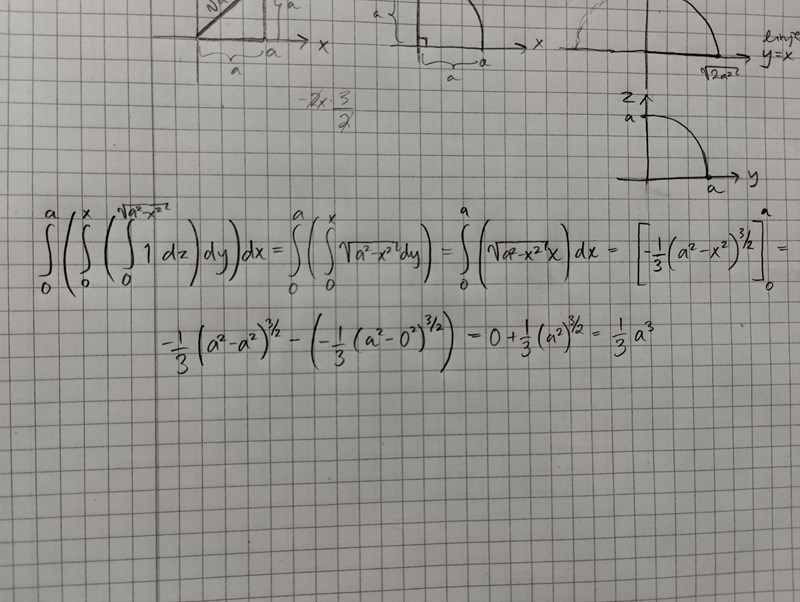 √a
a
a
x
a
a
x
a
a
linje
y=x
√2a²
-2x·3/2
z
a
y
a
∫₀ᵃ(∫₀ˣ(∫₀^√(a²-x²) 1 dz)dy)dx = ∫₀ᵃ(∫₀ˣ √(a²-x²) dy) = ∫₀ᵃ(√(a²-x²) x)dx = [-1/3(a²-x²)^3/2]₀ᵃ =
-1/3(a²-a²)^3/2 - (-1/3(a²-0²)^3/2) = 0+1/3(a²)^3/2 = 1/3 a³